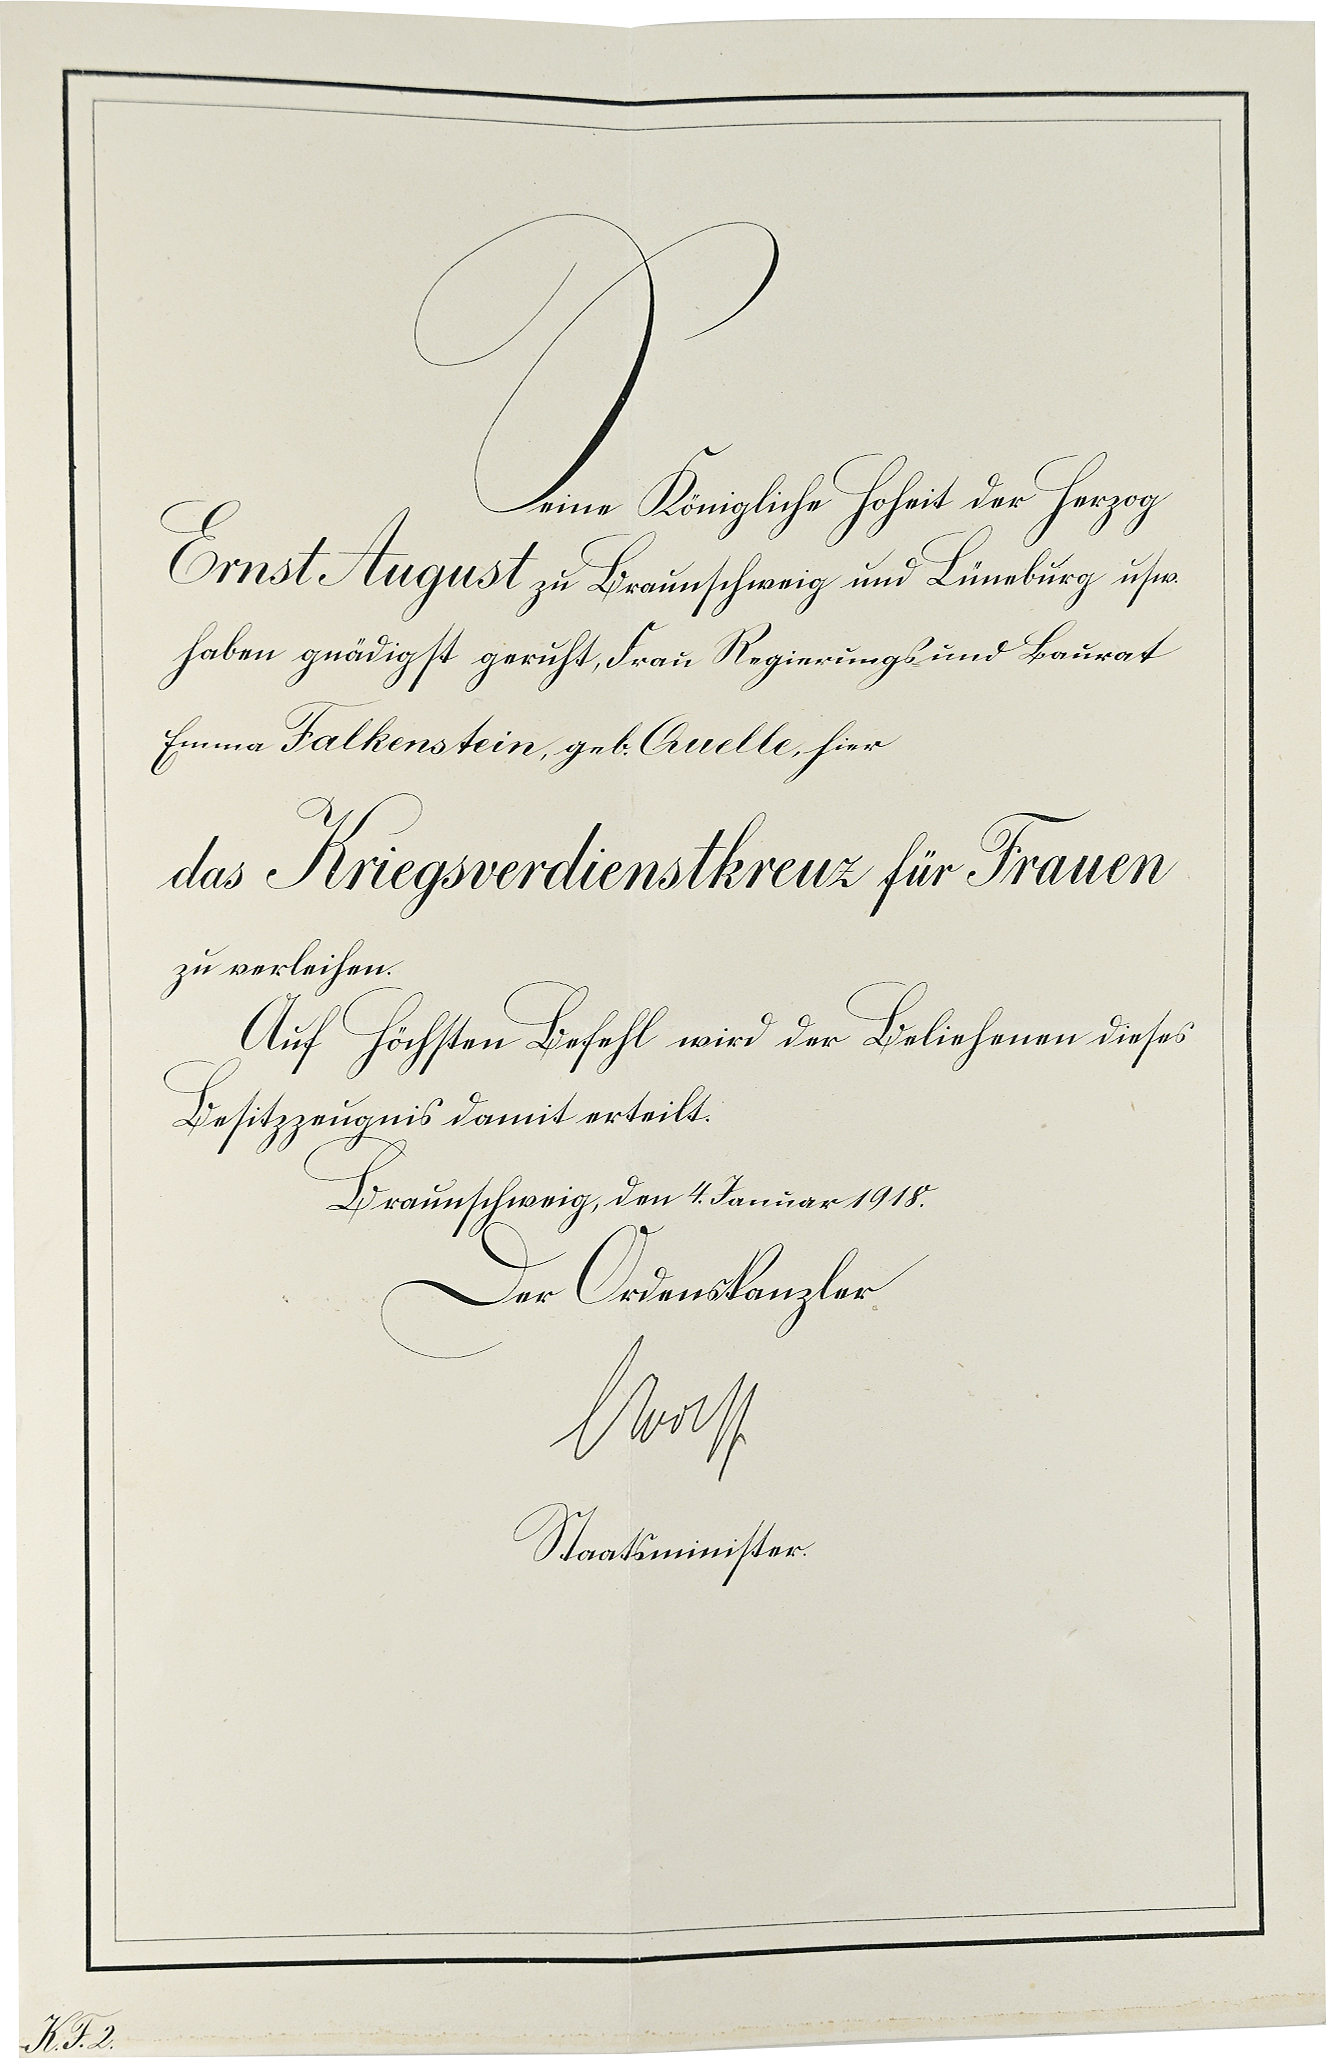 Seine Königliche Hoheit der Herzog
Ernst August zu Braunschweig und Lüneburg usw.
haben gnädigst geruht, Frau Regierungs- und Baurat
Emma Falkenstein, geb. Quelle, hier
das Kriegsverdienstkreuz für Frauen
zu verleihen.
Auf Höchsten Befehl wird der Beliehenen dieses
Besitzzeugnis damit erteilt.
Braunschweig, den 4. Januar 1918.
Der Ordenskanzler
Staatsminister.
K.F. 2.